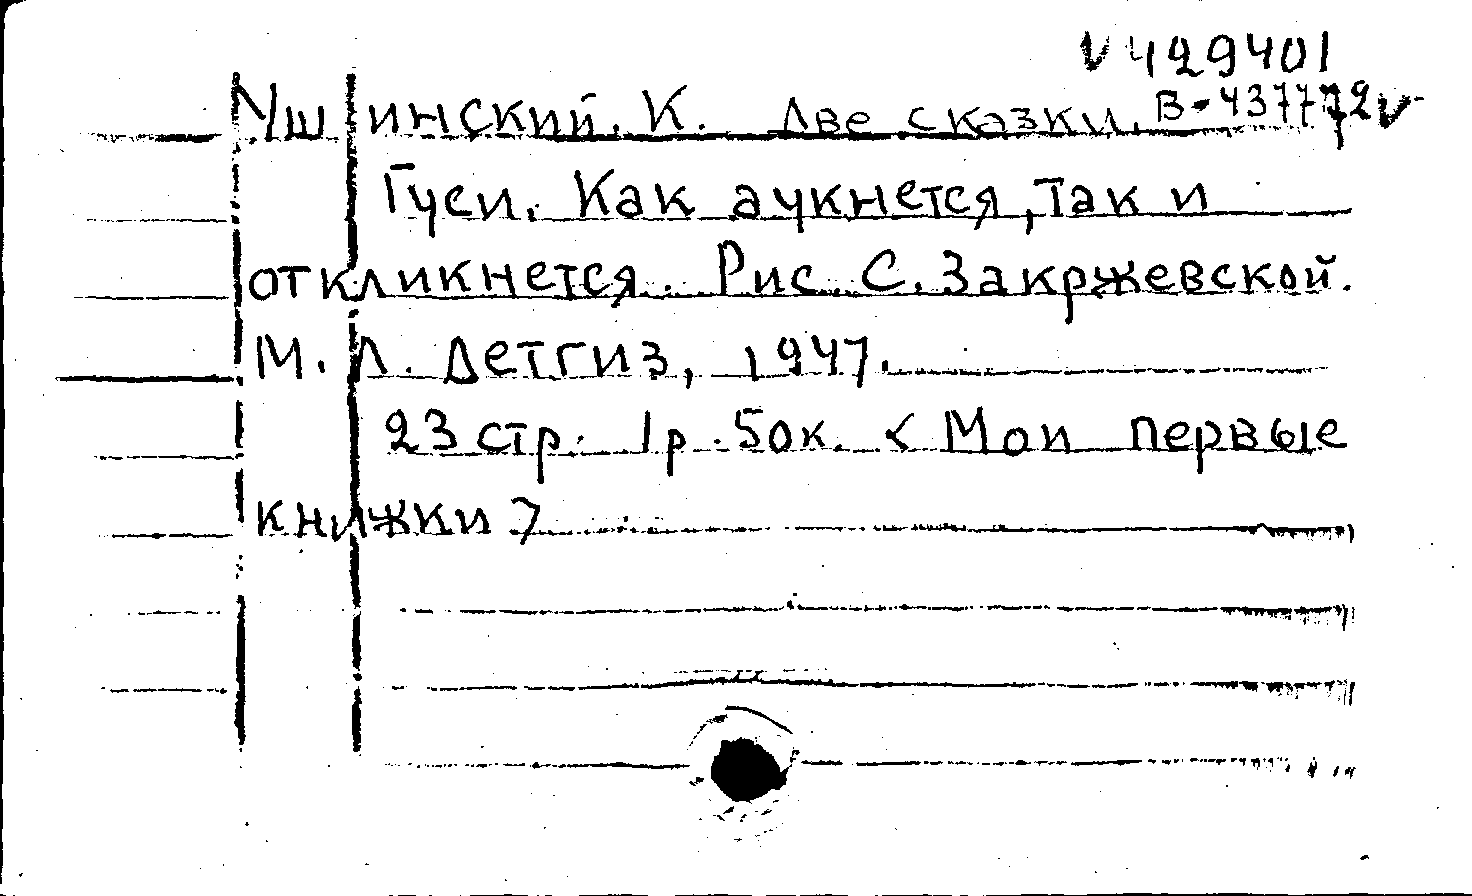 V 429401
Ушинский. К. Две сказки. В-437772 V
Гуси. Как аукнется, так и
откликнется. Рис. С. Закржевской.
М. Л. Детгиз, 1947.
23 стр. 1р. 50к. < Мои первые
книжки >